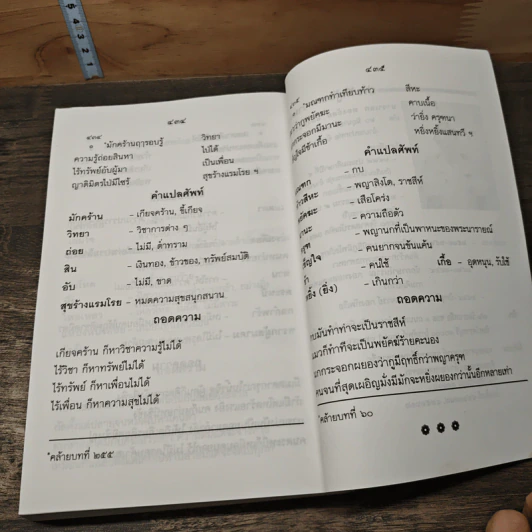 ๔๓๔
๔๓๔
๑ ˚มักคร้านฤารอบรู้ วิทยา
ความรู้ถ่อยสินหา ไป่ได้
ไร้ทรัพย์อับผู้มา เป็นเพื่อน
ญาติมิตรไป่มีไซร้ สุขร้างแรมโรย ฯ
คำแปลศัพท์
มักคร้าน – เกียจคร้าน, ขี้เกียจ
วิทยา – วิชาการต่าง ๆ
ถ่อย – ไม่มี, ต่ำทราม
สิน – เงินทอง, ข้าวของ, ทรัพย์สมบัติ
อับ – ไม่มี, ขาด
สุขร้างแรมโรย – หมดความสุขสนุกสนาน
ถอดความ
เกียจคร้าน ก็หาวิชาความรู้ไม่ได้
ไร้วิชา ก็หาทรัพย์ไม่ได้
ไร้ทรัพย์ ก็หาเพื่อนไม่ได้
ไร้เพื่อน ก็หาความสุขไม่ได้
˚คล้ายบทที่ ๒๕๕
๔๓๕
˚มณฑกทำเทียบท้าว สีหะ
คาบเนื้อ
ว่ายิ่ง ครุฑนา
หยิ่งหยิ่งแสนทวี ฯ
คำแปลศัพท์
– กบ
– พญาสิงโต, ราชสีห์
– เสือโคร่ง
– ความถือตัว
– พญานกที่เป็นพาหนะของพระนารายณ์
– คนยากจนข้นแค้น
– คนใช้ เกื้อ – อุดหนุน, รับใช้
(ยิ่ง) – เกินกว่า
ถอดความ
กบมันทำท่าจะเป็นราชสีห์
แมวก็ทำทีจะเป็นพยัคฆ์ร้ายคะนอง
นกกระจอกผยองว่ากูมีฤทธิ์กว่าพญาครุฑ
คนจนที่สุดเผอิญมั่งมีมักจะหยิ่งผยองกว่านั้นอีกหลายเท่า
˚คล้ายบทที่ ๖๐